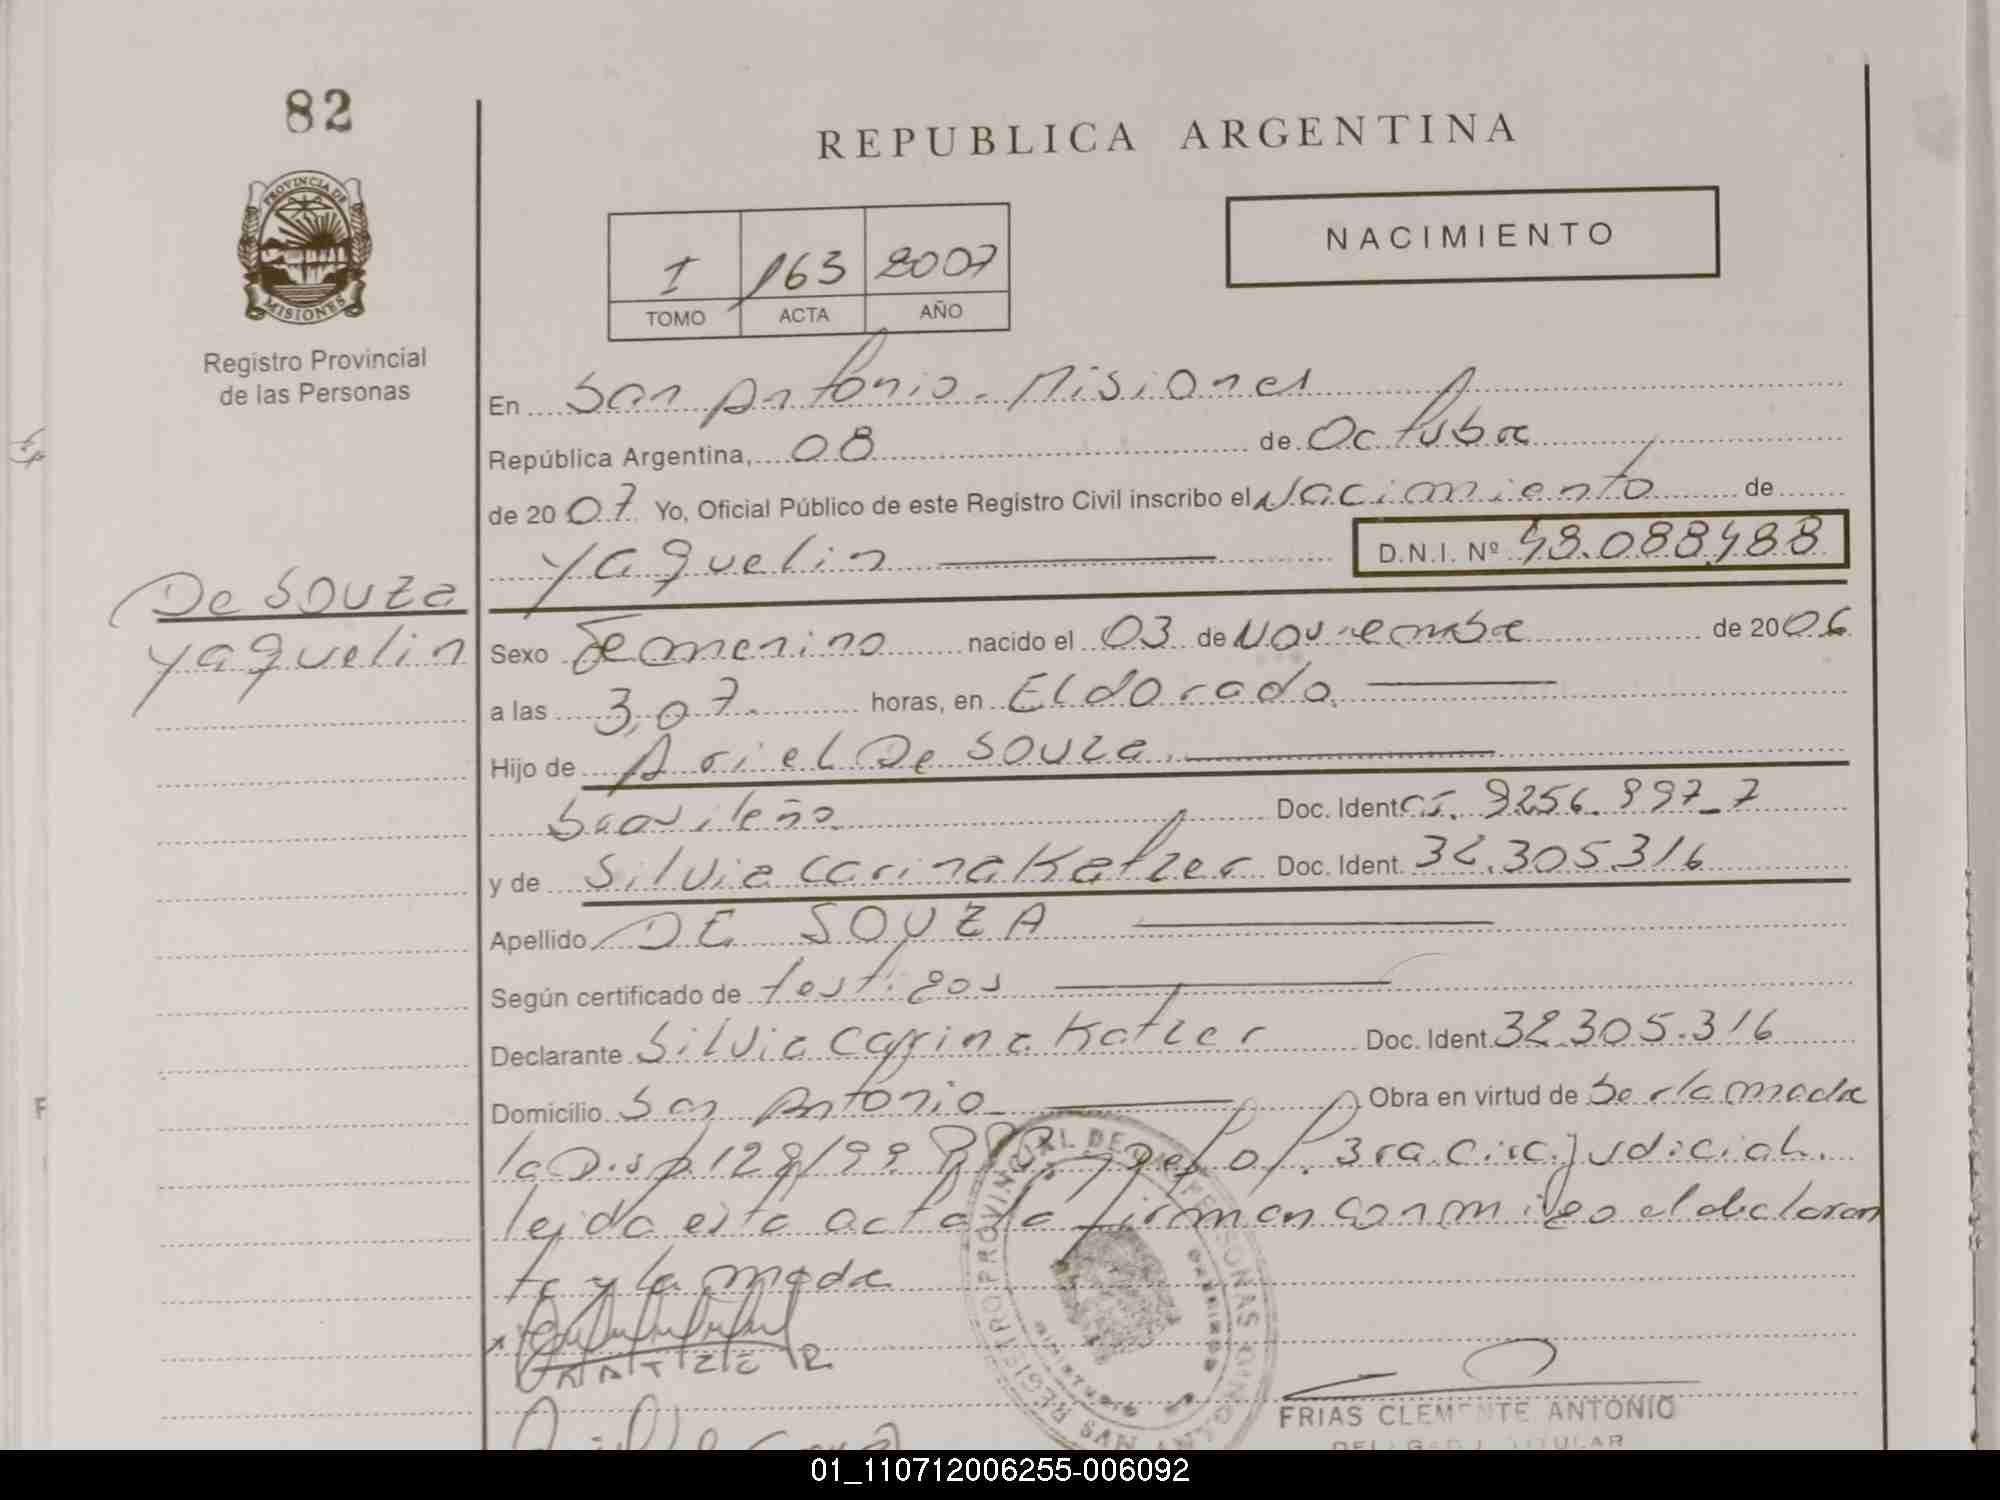 82
REPUBLICA ARGENTINA
PROVINCIA DE
MISIONES
Registro Provincial
de las Personas
NACIMIENTO
I 163 2007
TOMO ACTA AÑO
En San Antonio - Misiones
República Argentina, 08 de Octubre
de 2007 Yo, Oficial Público de este Registro Civil inscribo el Nacimiento de
Yaquelin D.N.I. Nº 48.088.488
De Souza
Yaquelin
Sexo Femenino nacido el 03 de Noviembre de 2006
a las 3,07 horas, en Eldorado.
Hijo de Ariel De Souza
brasileño Doc. Ident. CI. 9256.997-7
y de Silvia Carina Katzer Doc. Ident. 32.305.316
Apellido DE SOUZA
Según certificado de testigos
Declarante Silvia Carina Katzer Doc. Ident. 32.305.316
Domicilio San Antonio Obra en virtud de Ser la madre
la Disp 128/99 3ra. Circ. Judicial.
leida esta acta la firman conmigo el declaran
te y la madre
KATZER
REGISTRO PROVINCIAL DE LAS PERSONAS
SAN ANTONIO
FRIAS CLEMENTE ANTONIO
DELEGADO TITULAR
01_110712006255-006092